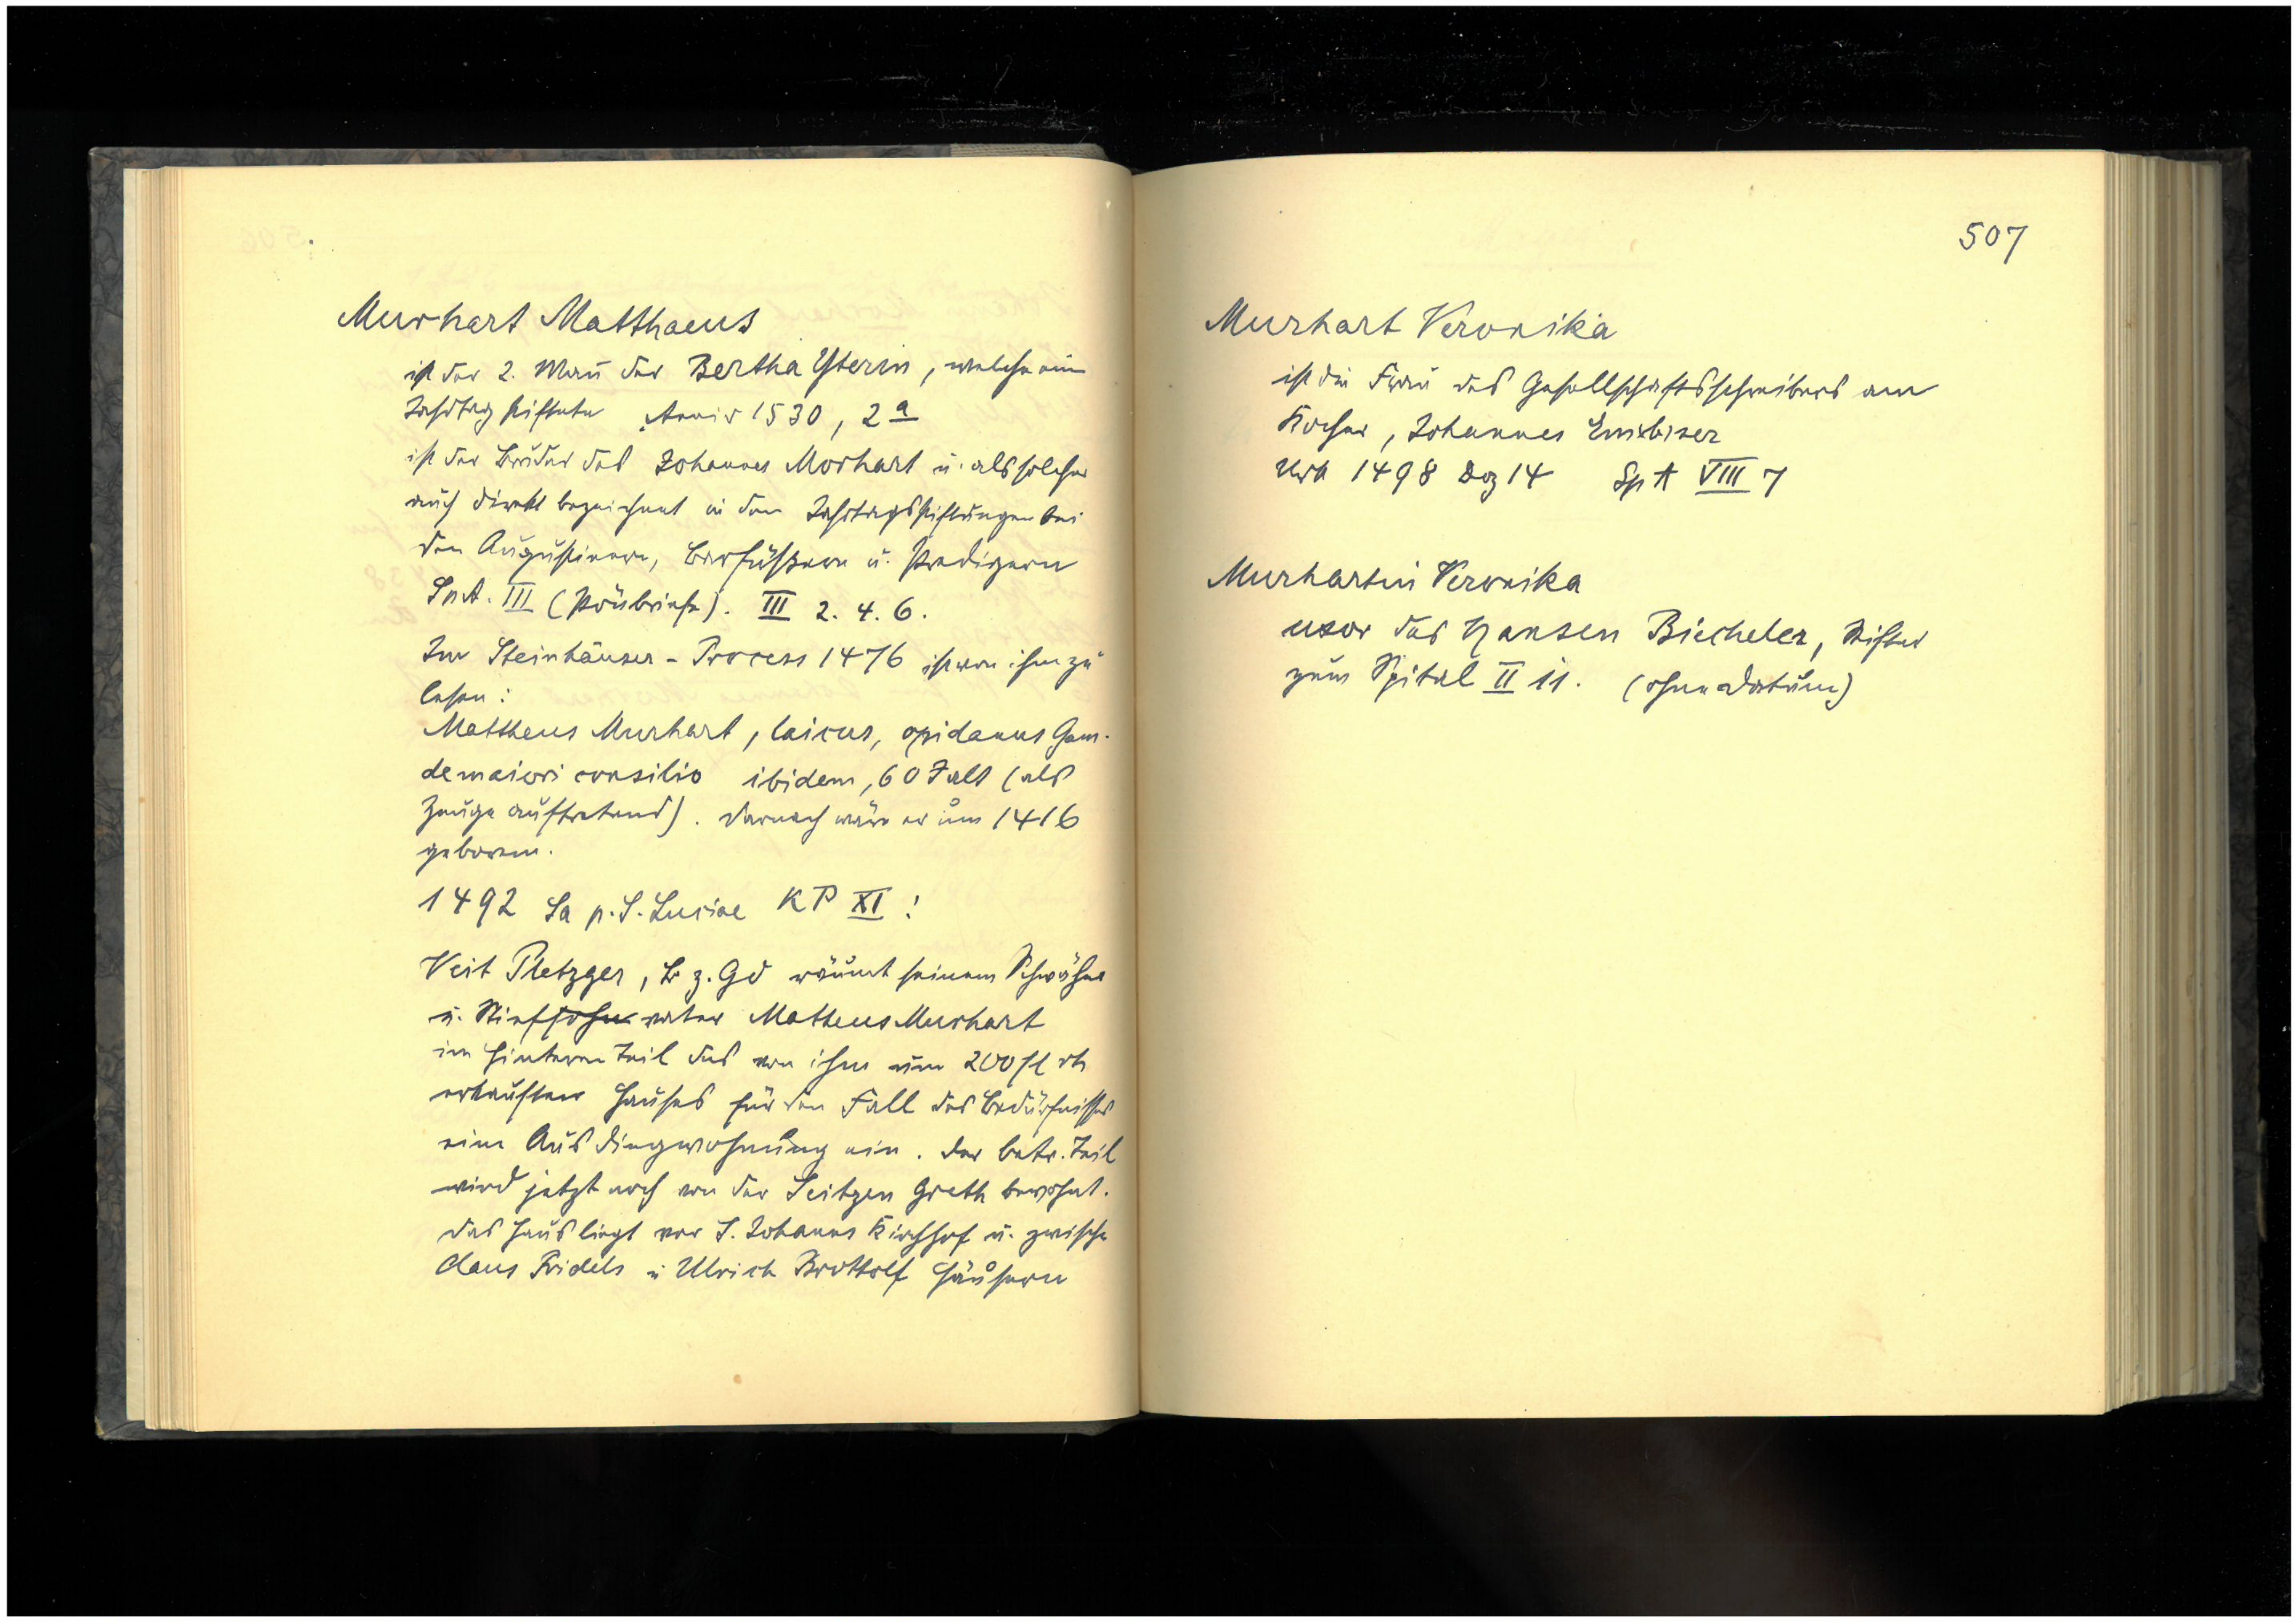 Murhart Matthaeus
ist der 2. Mañ der Bertha Yterin, welche ein
Jahrtag stiftete Anniv 1530, 2a
ist der Bruder des Johannes Morhart u. als solcher
auch direkt bezeichnet in den Jahrtagsstiftungen bei
den Augustinern, Barfüßern u. Predigern
SpA. III (Pönbriefe). III 2. 4. 6.
Im Steinhäuser - Process 1476 ist von ihm zu
lesen:
Mattheus Murhart, laicus, opidanus Gam.
de maiori consilio ibidem, 60 J alt (als
Zeuge auftretend). Darnach wäre er um 1416
geboren.
1492 Sa p. S. Luciae KP XI:
Veit Pletzger, B z. Gd räumt seinem Schwäher
u. Stiefsohn vater Matheus Murhart
im hinteren Teil des von ihm um 200 fl rh
erkauften Hauses für den Fall des Bedürfnisses
eine Ausdingwohnung ein. Der betr. Teil
wird jetzt noch von der Seitzen Greth bewohnt.
Das Haus liegt vor S. Johanns Kirchhof u. zwische
Claus Fridels u Ulrich Brottolf Häusern
507
Murhart Veronika
ist die Frau des Gesellschaftsschreibers am
Kocher, Johannes
Urk 1498 Dez 14 SpA VIII 7
Murhartin Veronika
uxor des Hansen Biecheler, Stifter
zum Spital II 11. (ohne Datum)